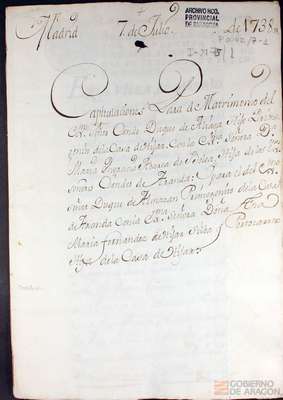 Madrid 7 de Julio. de 1738.
ARCHIVO HCO.
PROVINCIAL
DE ZARAGOZA
Capitulaciones Para el Matrimonio del
Exmo. Señor Conde Duque de Aliaga Hijo
de la Casa de Hijar con la Exma. Señora Da.
Maria Engracia Abarca de Bolea Hija de los
Señores Condes de Aranda; Y para el del Exmo.
Señor Duque de Almazan Primogenito de la Casa
de Aranda con la Exma. Señora Doña Ana
Maria Fernandez de Hijar Silva Portocarrero
Hija de la Casa de Hijar
GOBIERNO
DE ARAGON